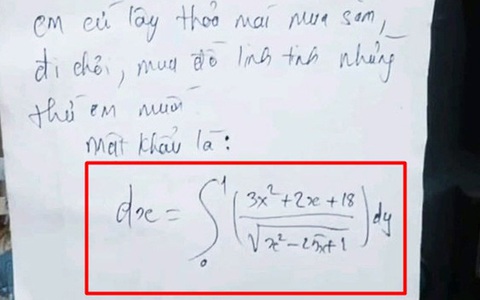 em cứ lấy thoả mái mua sắm,
đi chơi, mua đồ linh tinh những
thứ em muốn
mật khẩu là:
dx = ∫₀¹ (3x² + 2x + 18 / √(x² - 25x + 1)) dy